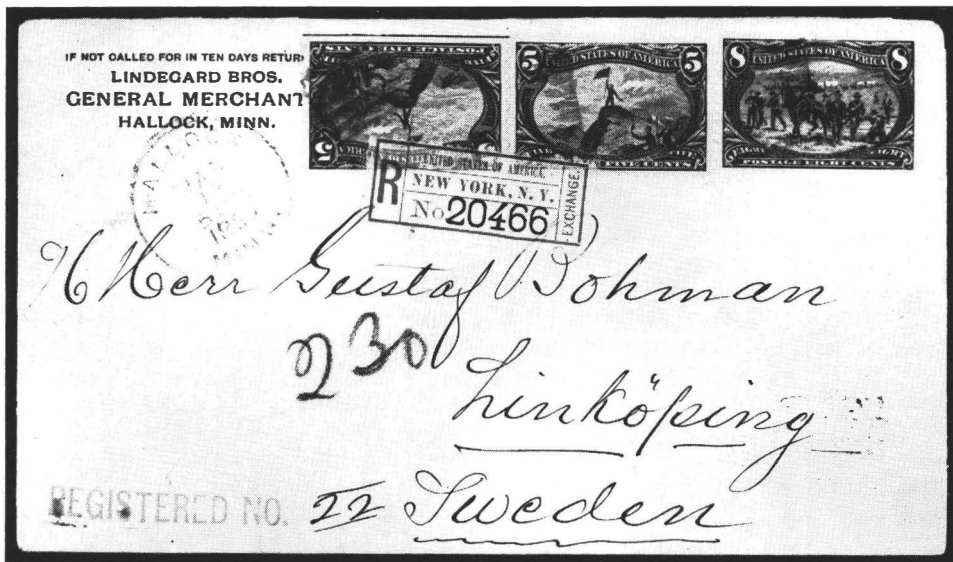 IF NOT CALLED FOR IN TEN DAYS RETUR
LINDEGARD BROS.
GENERAL MERCHANT
HALLOCK, MINN.
5 5
UNITED STATES OF AMERICA
FIVE CENTS
8 8
UNITED STATES OF AMERICA
POSTAGE EIGHT CENTS
HALLOCK
MINN.
R
UNITED STATES OF AMERICA
NEW YORK, N. Y.
No 20466
EXCHANGE.
Herr Gustaf Bohman
230
Linköping
Sweden
REGISTERED NO. 22